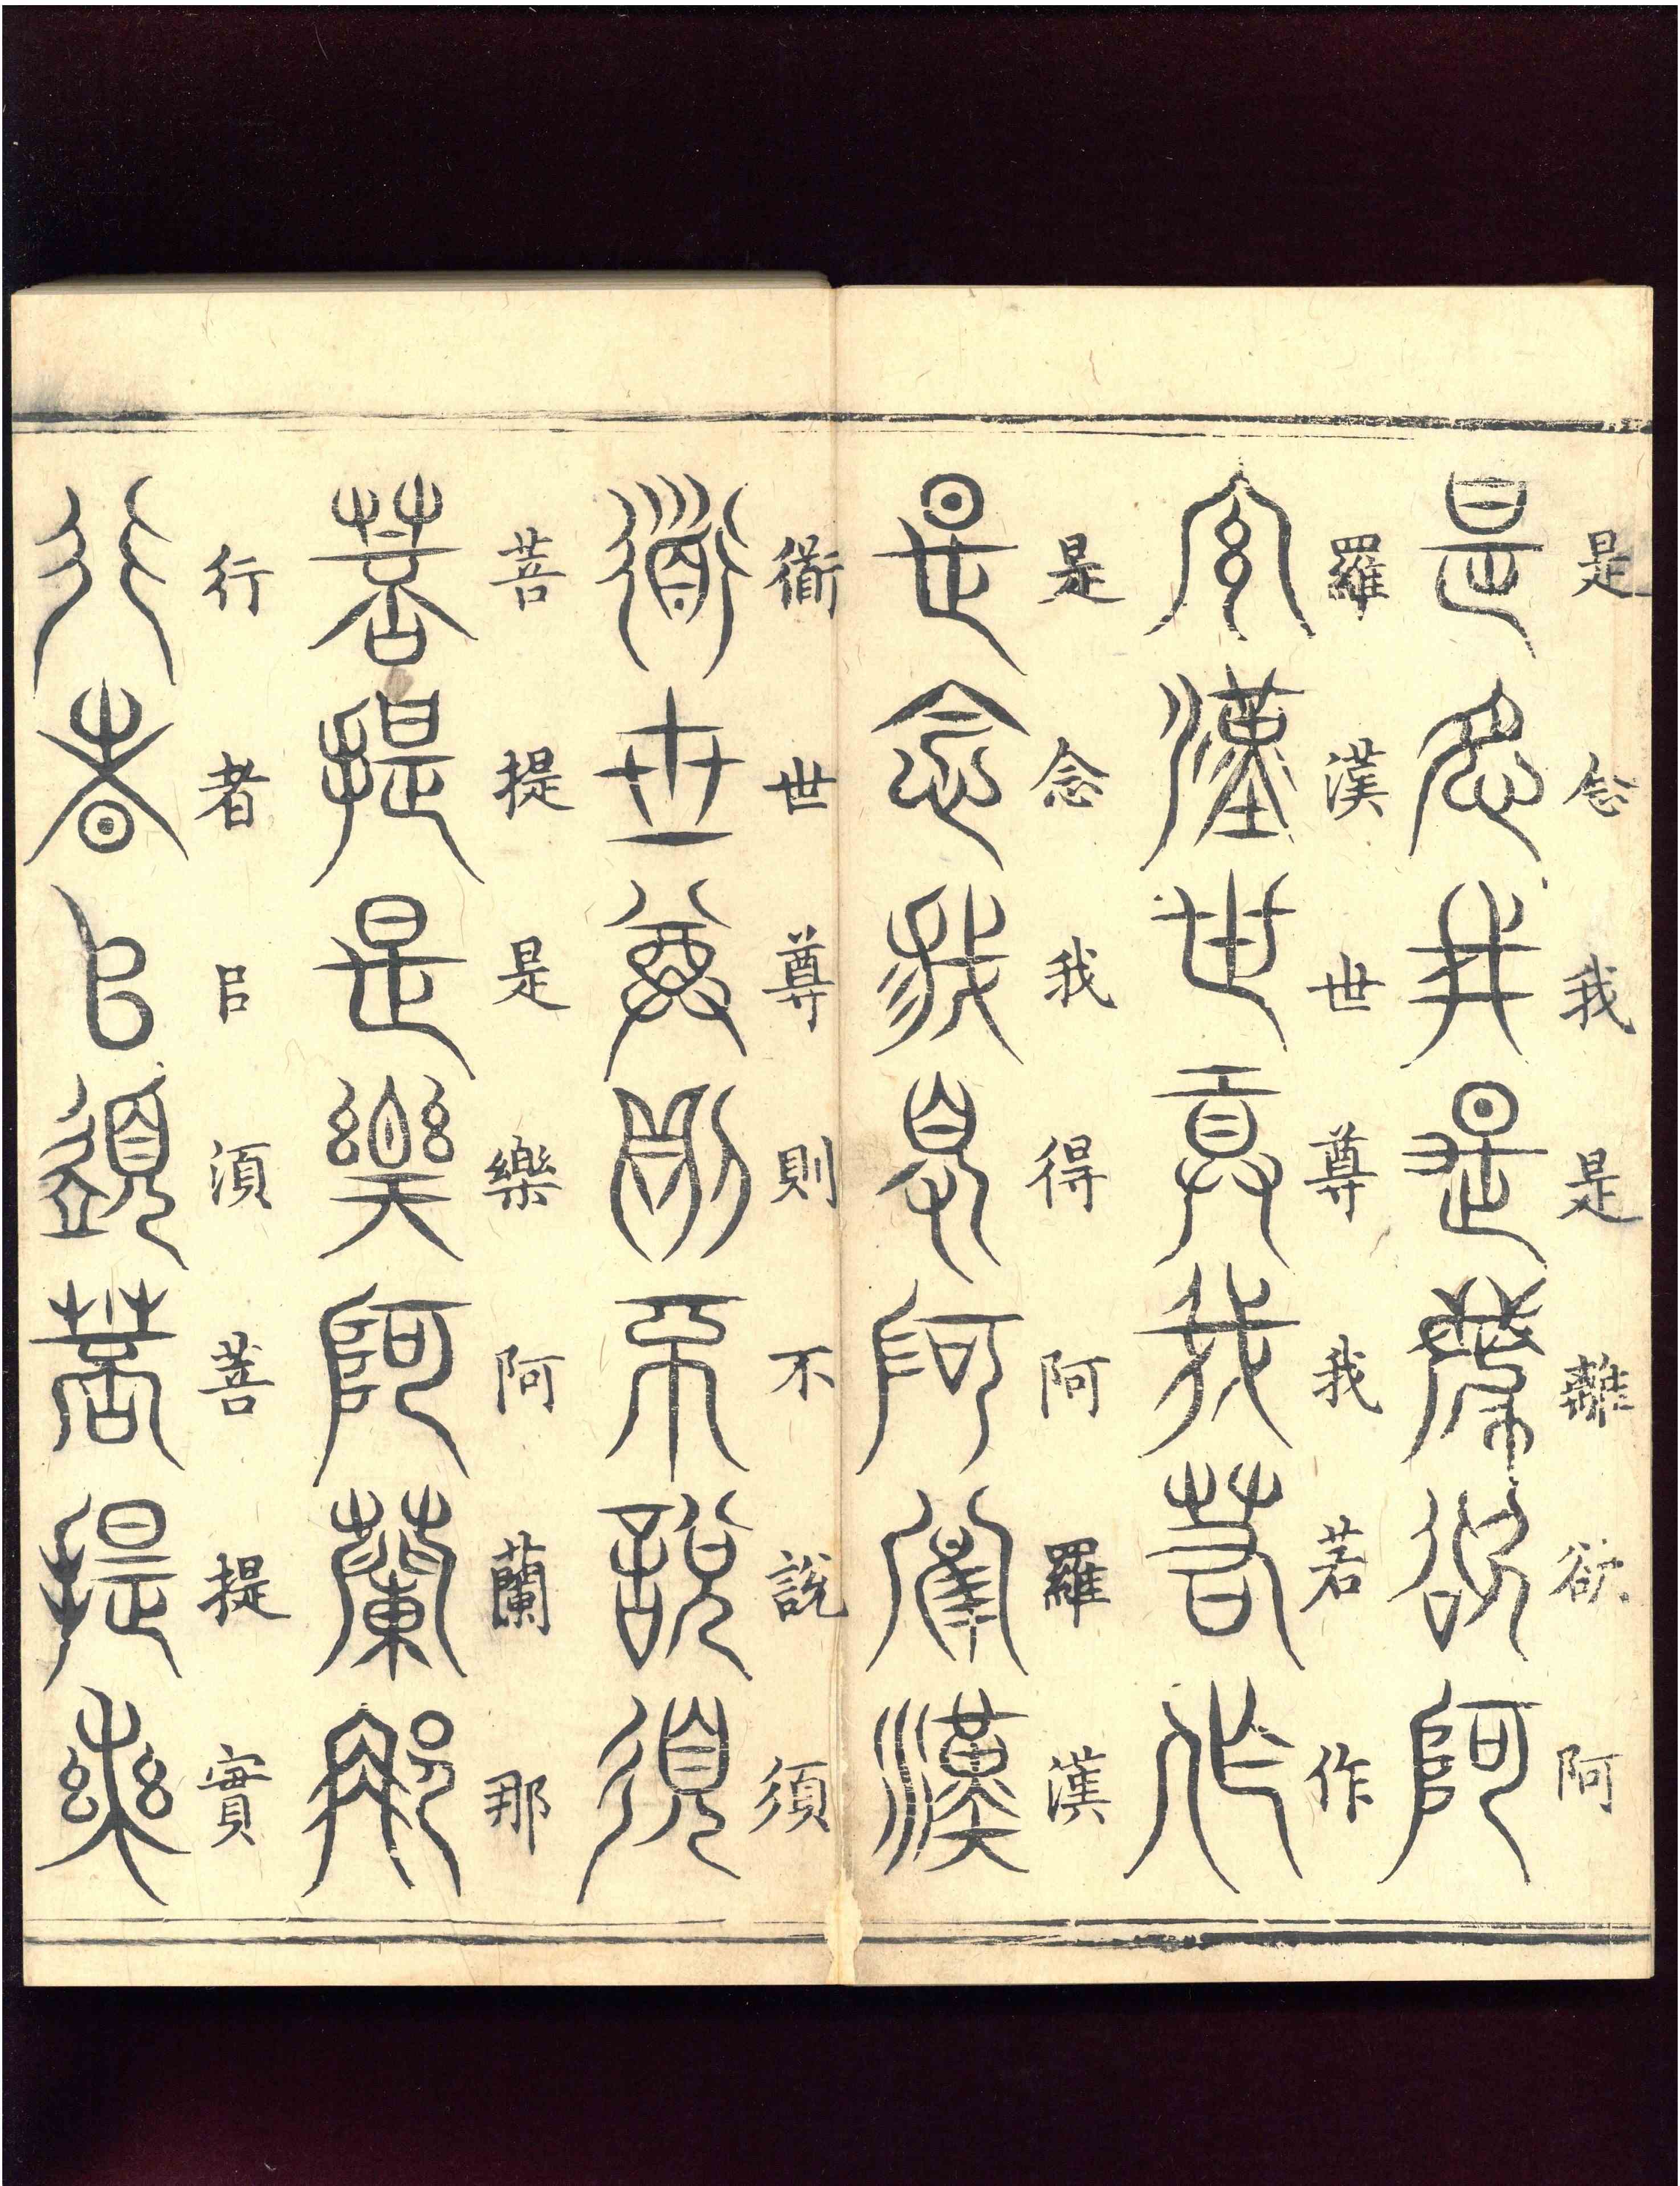 是念我是離欲阿
是念我是離欲阿
羅漢世尊我若作
羅漢世尊我若作
是念我得阿羅漢
是念我得阿羅漢
衜世尊則不說須
衜世尊則不說須
菩提是樂阿蘭那
菩提是樂阿蘭那
行者㠯湏菩提實
行者㠯須菩提實